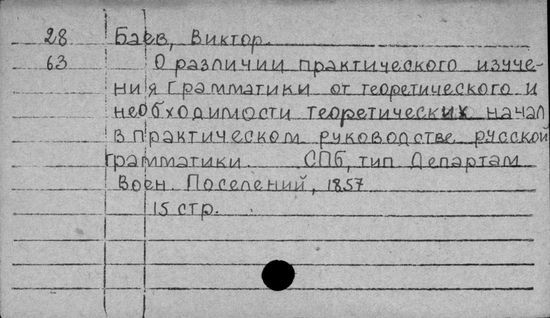 28 Баев, Виктор.
63 О различии практического изуче-
ния грамматики от теоретического и
необходимости теоретических начал
в практическом руководстве русской
грамматики. СПб, тип Департам
Воен. Поселений, 1857
15 стр.